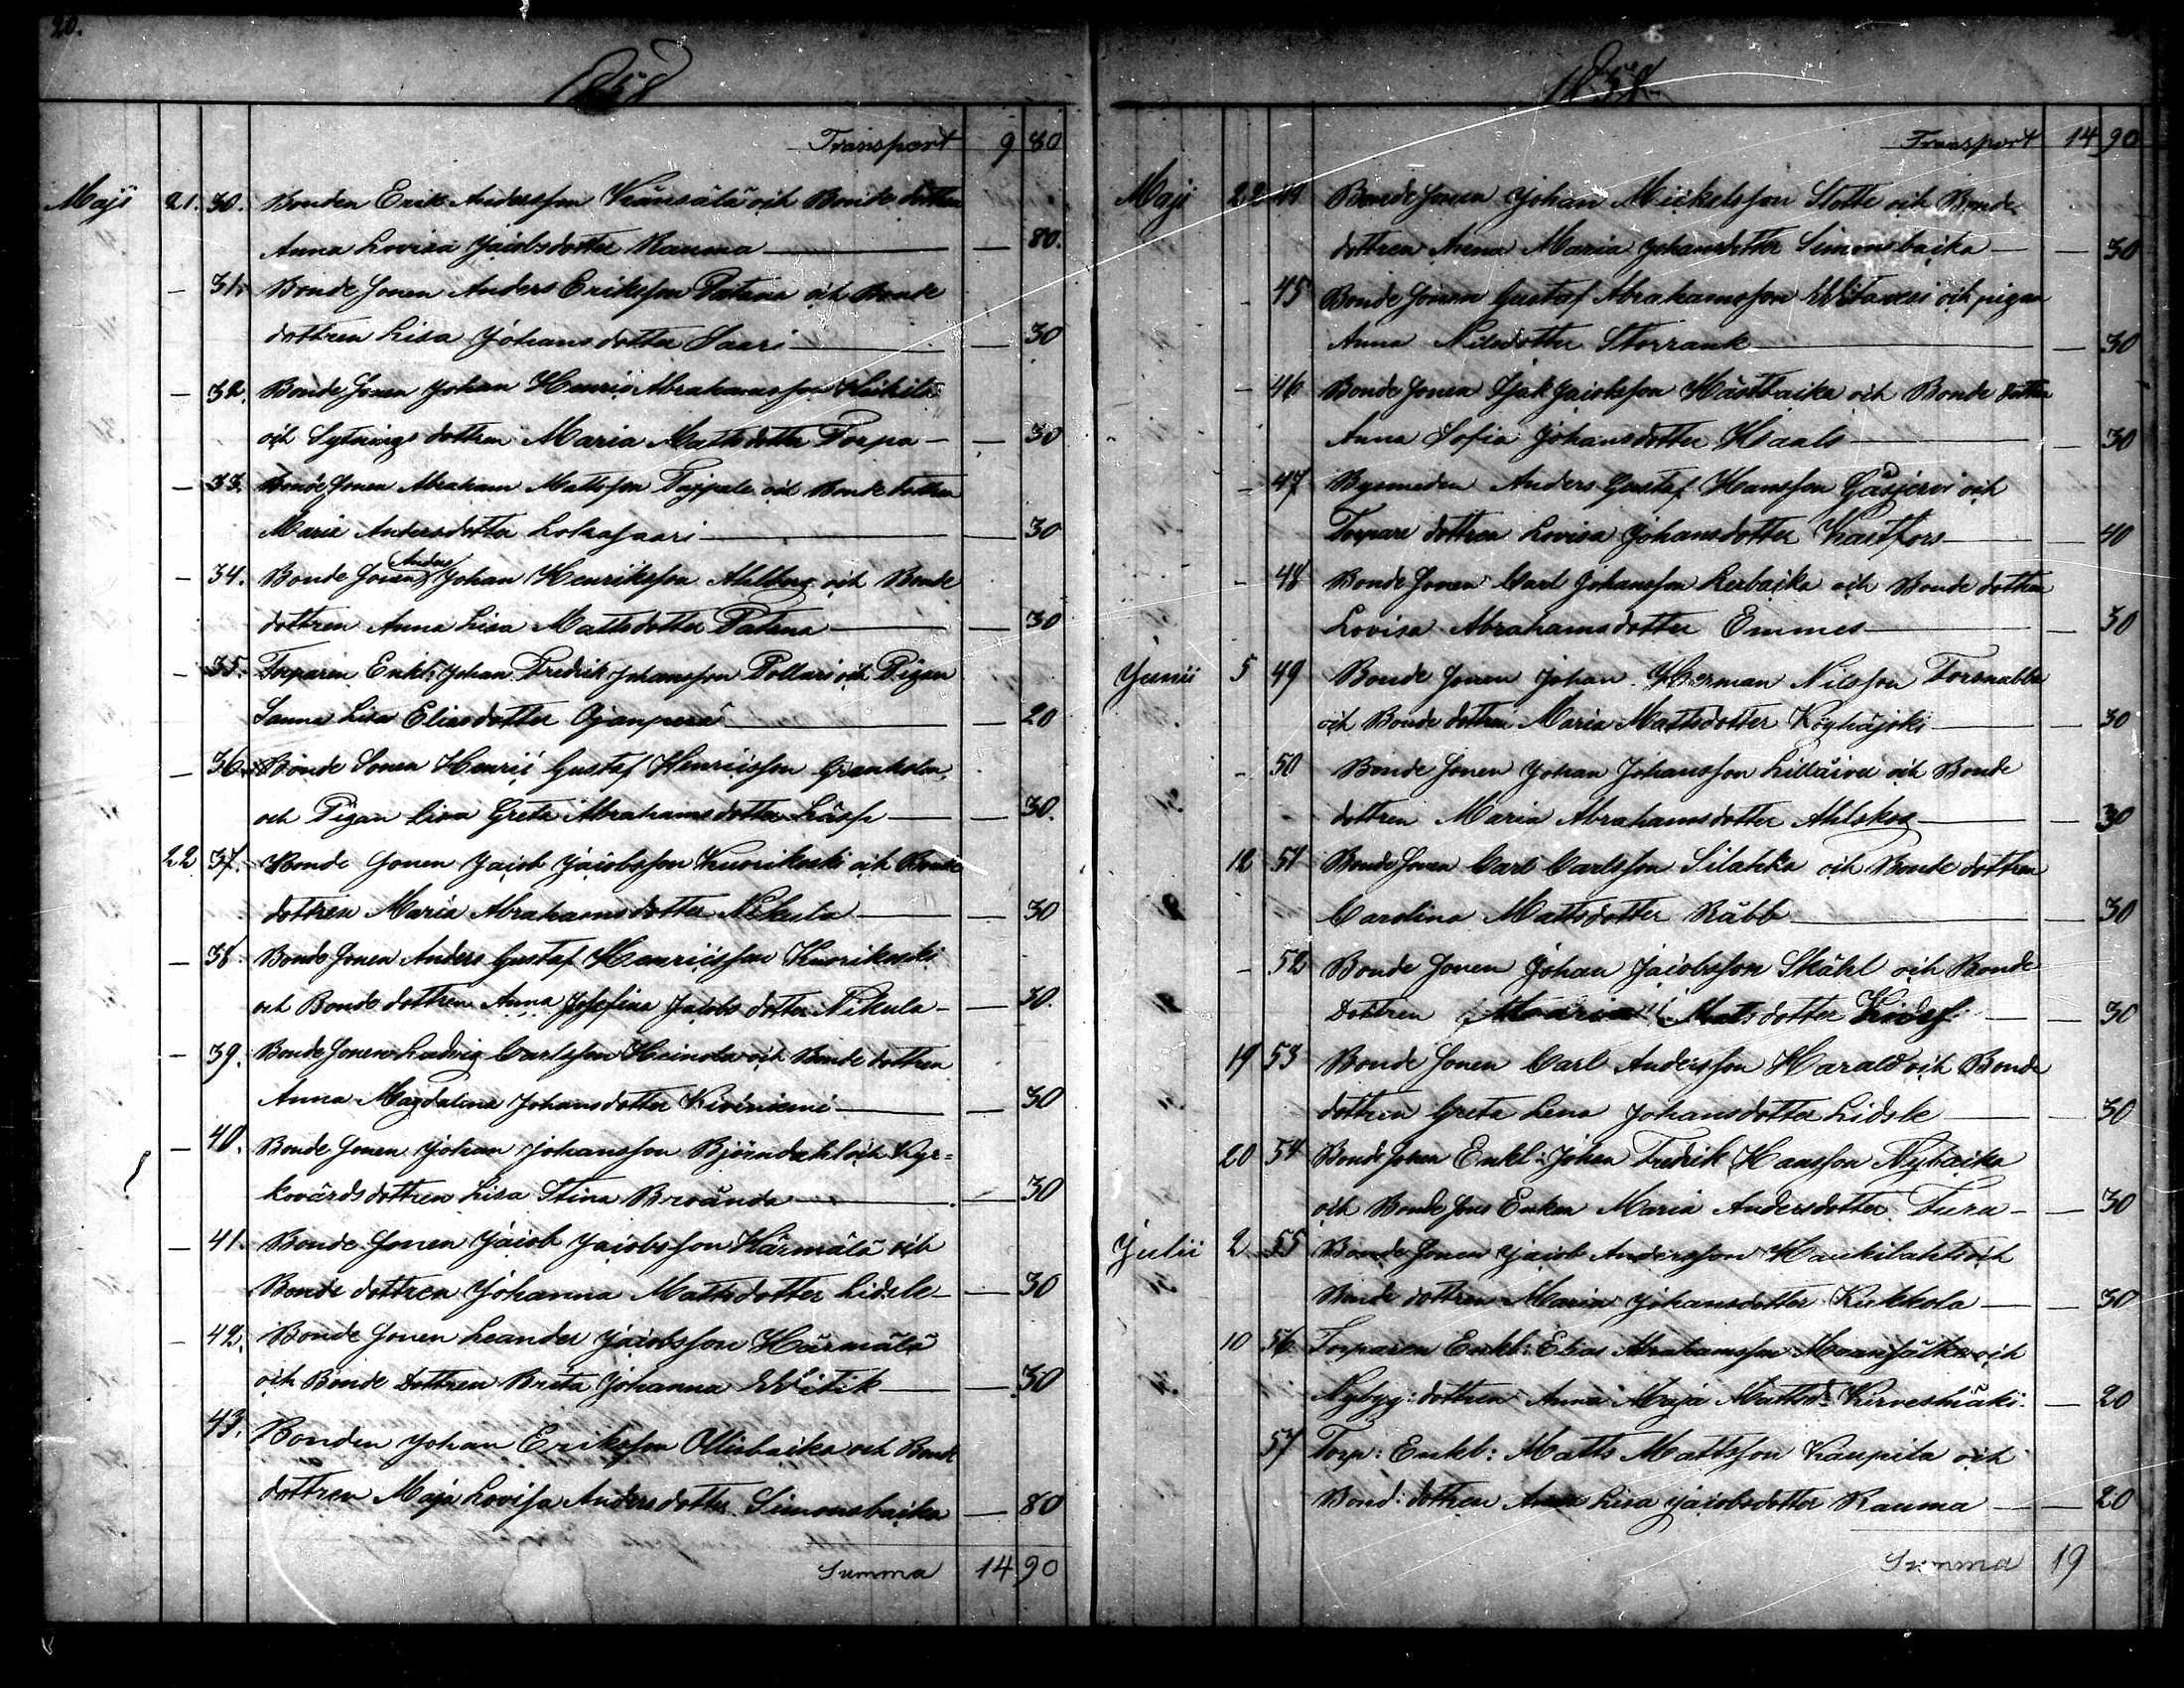 20.
1858
Transport 9 80
Maji 21. 30. Bonden Erik Andersson Känsälä och Bonde dottren
Anna Lovisa Jacobsdotter Rauma — 80.
— 31. Bonde Sonen Anders Eriksson Patana och Bonde
dottren Lisa Johansdotter Saari — 30
— 32. Bonde Sonen Johan Henric Abrahamsson
och Sytnings dottren Maria Mattsdotter Torpa — 30
— 33. Bonde Sonen Abraham Mattsson och Bonde dottren
Maria Andersdotter Lokasaari — 30
— 34. Bonde Sonen Anders Johan Henriksson Ahlberg och Bonde
dottren Anna Lisa Mattsdotter Patana — 30
— 35. Torparen Enkl: Johan Fredrik Johansson Pollari och Pigan
Sanna Lisa Eliasdotter Ojanperä — 20
— 36. Bonde Sonen Henric Gustaf Henricsson Granholm,
och Pigan Lisa Greta Abrahamsdotter Käsp — 30.
22. 37. Bonde Sonen Jacob Jacobsson Kuorikoski och Bonde
dottren Maria Abrahamsdotter Nikula — 30
— 38. Bonde Sonen Anders Gustaf Henricsson Kuorikoski
och Bonde dottren Anna Josefina Jacobs dotter Nikula — 30.
— 39. Bonde Sonen Ludvig Carlsson Heinola och Bonde dottren
Anna Magdalena Johansdotter Kiviniemi — 30
— 40. Bonde Sonen Johan Johansson Björndahl och Kyr=
kovärds dottren Lisa Stina Brevända — 30
— 41. Bonde Sonen Jacob Jacobsson Härmälä och
Bonde dottren Johanna Mattsdotter Lidsle — 30
— 42. Bonde Sonen Leander Jacobsson Härmälä
och Bonde Dottren Brita Johanna Witik — 30
43. Bonden Johan Eriksson Ollisbacka och Bonde
dottren Maja Lovisa Andersdotter Simonsbacka — 80
Summa 14 90
1858
Transport 14 90
Maji 22 44 Bonde Sonen Johan Mickelsson Slotte och Bonde
dottren Anna Maria Johansdotter Simonsbacka — 30
— 45 Bonde Sonen Gustaf Abrahamsson Witavesi och pigan
Anna Nilsdotter Storrank — 30
— 46 Bonde Sonen Isak Jacobsson Hästbacka och Bonde dotter
Anna Sofia Johansdotter — 30
— 47 Bysmeden Anders Gustaf Hansson Gåsjervi och
Torpare dottren Lovisa Johansdotter Kastfors — 40
— 48 Bonde Sonen Carl Johansson Lerbacka och Bonde dottren
Lovisa Abrahamsdotter Emmes — 30
Junii 5 49 Bonde Sonen Johan Herman Nilsson Forsnabba
och Bonde dottren Maria Mattsdotter Köyhäjoki — 30
— 50 Bonde Sonen Johan Johansson och Bonde
dottren Maria Abrahamsdotter Ahlskog — 30
12 51 Bonde Sonen Carl Carlsson Silahka och Bonde dottren
Carolina Mattsdotter Räbb — 30
— 52 Bonde Sonen Johan Jacobsson Skåhl och Bonde
Dottren Maria Matsdotter — 30
19 53 Bonde Sonen Carl Andersson Harald och Bonde
dottren Greta Lena Johansdotter Lidsle — 30
20 54 Bonde Sonen Enkl: Johan Fredrik Hansson Nybacka
och Bonde Sons Enkan Maria Andersdotter Fura — 30
Julii 2 55 Bonde Sonen Jacob Andersson Haukilahti och
Bonde dottren Maria Johansdotter Kukkola — 30
10 56 Torparen Enkl: Elias Abrahamsson och
Nybyg: dottren Anna Maja Mattsd: — 20
57 Torp: Enkl: Matts Mattsson Kaupila och
Bond: dottren Anna Lisa Jacobsdotter Rauma — 20
Summa 19